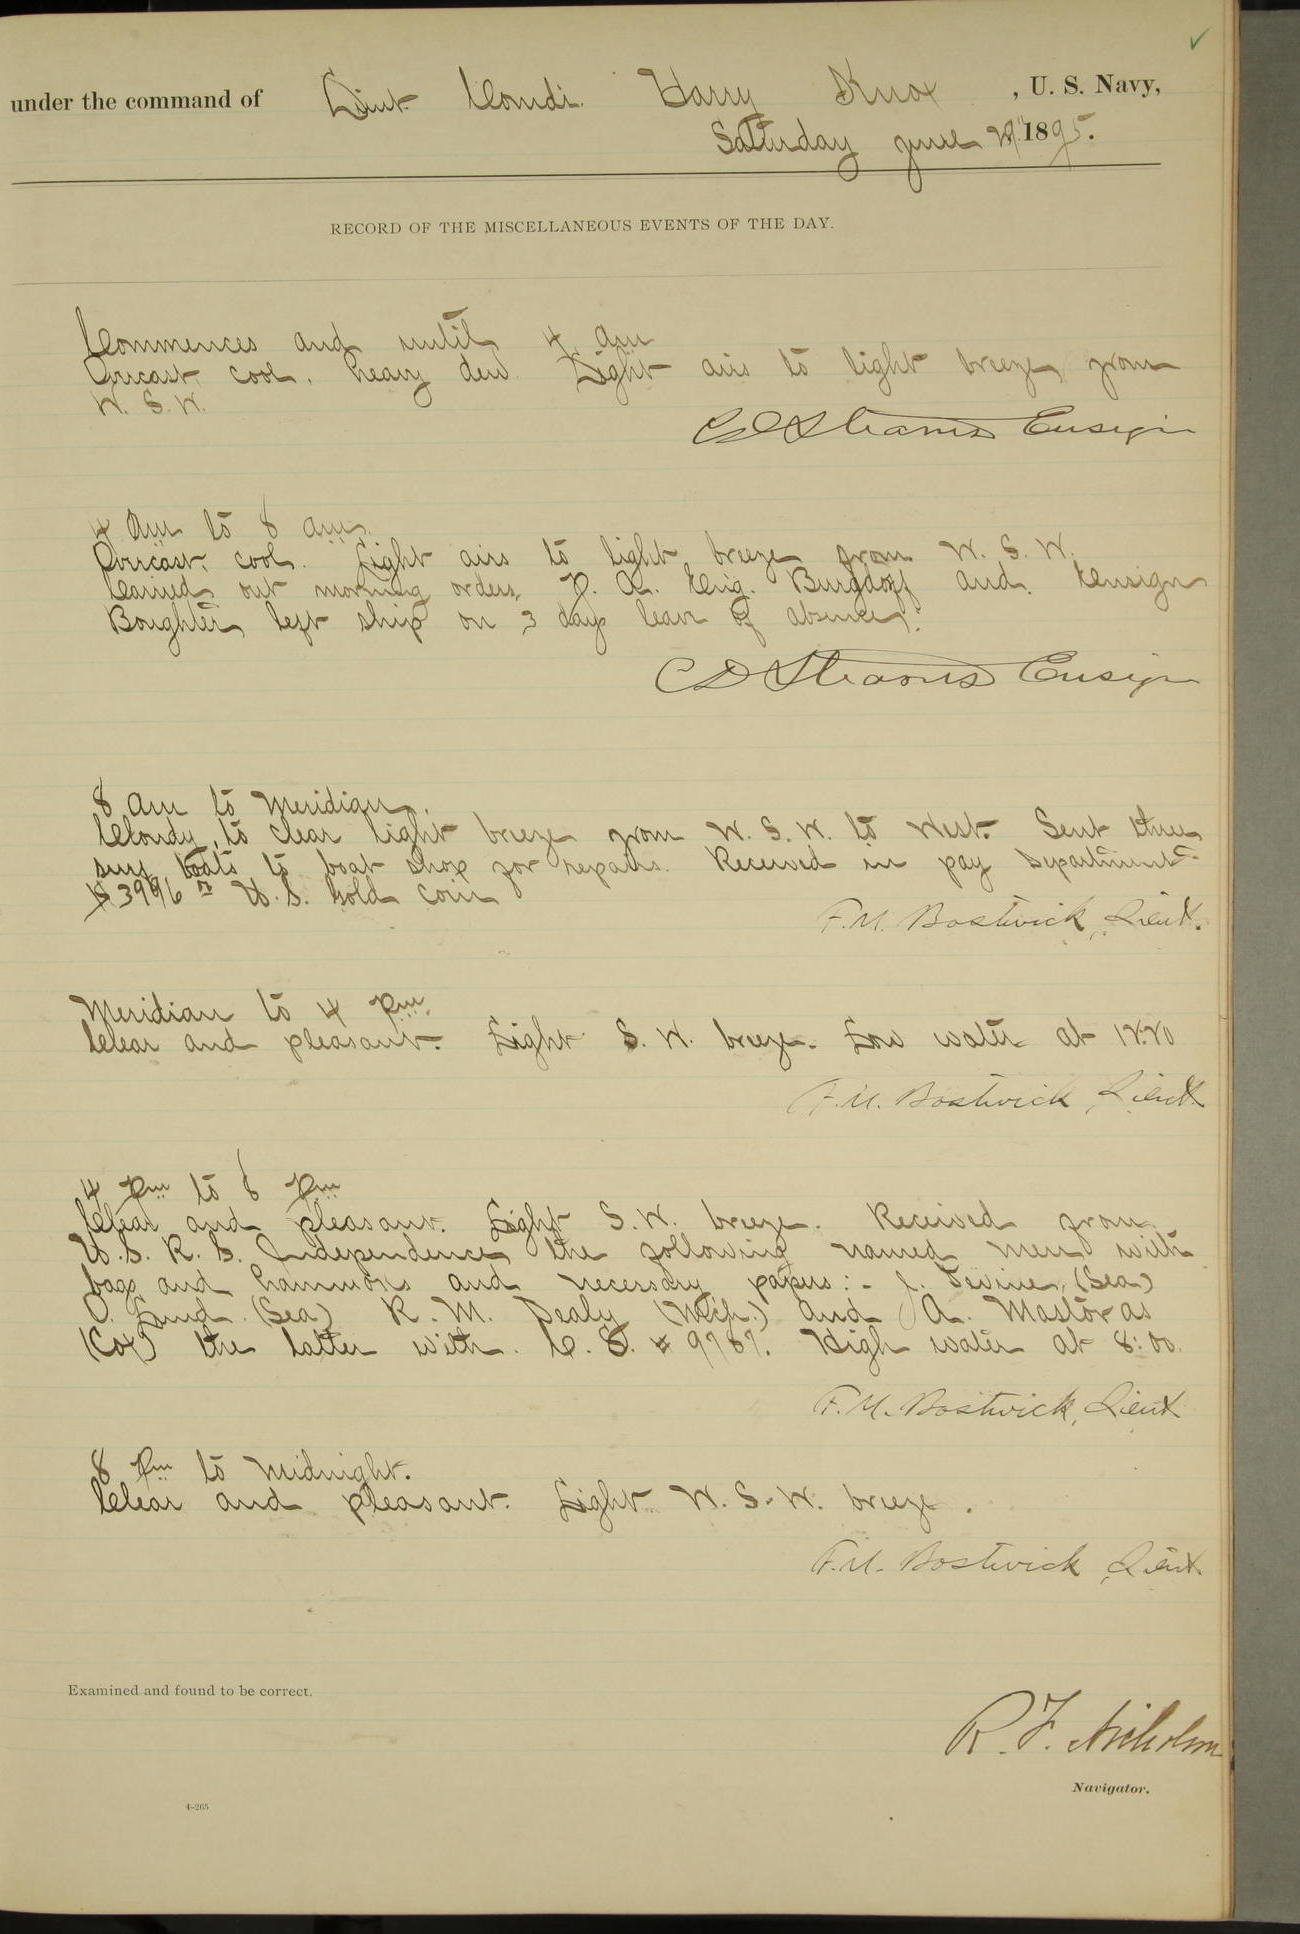 ✓
under the command of Lieut. Comdr. Harry Knox , U. S. Navy,
Saturday June 29" 1895.
RECORD OF THE MISCELLANEOUS EVENTS OF THE DAY.
Commences and until 4 am
Overcast, cool, heavy dew. Light airs to light breeze from
W. S. W.
C D Stearns Ensign
4 am to 8 am.
Overcast, cool. Light airs to light breeze from W. S. W.
Carried out morning orders. P. A. Eng. Burgdorff and Ensign
Boughter left ship on 3 days leave of absence.
C D Stearns Ensign
8 am to Meridian.
Cloudy, to clear light breeze from W. S. W. to West. Sent three
surf boats to boat shop for repairs. Received in pay Department
$3996 U. S. Gold coin
F. M. Bostwick, Lieut.
Meridian to 4 Pm.
Clear and pleasant. Light S. W. breeze. Low water at 12:20
F. M. Bostwick, Lieut.
4 Pm to 8 Pm
Clear and pleasant. Light S. W. breeze. Received from
U. S. R. S. Independence the following named men with
bags and hammocks and necessary papers: - J. Devine, (Sea)
O. Lund (Sea) R. M. Dealy (Mch.) and A. Mastoras
(Cox) the latter with C. S. # 9787. High water at 8:00.
F. M. Bostwick, Lieut
8 Pm to Midnight.
Clear and pleasant. Light W. S. W. breeze.
F. M. Bostwick, Lieut.
Examined and found to be correct.
R. F. Nicholson
Navigator.
4-265